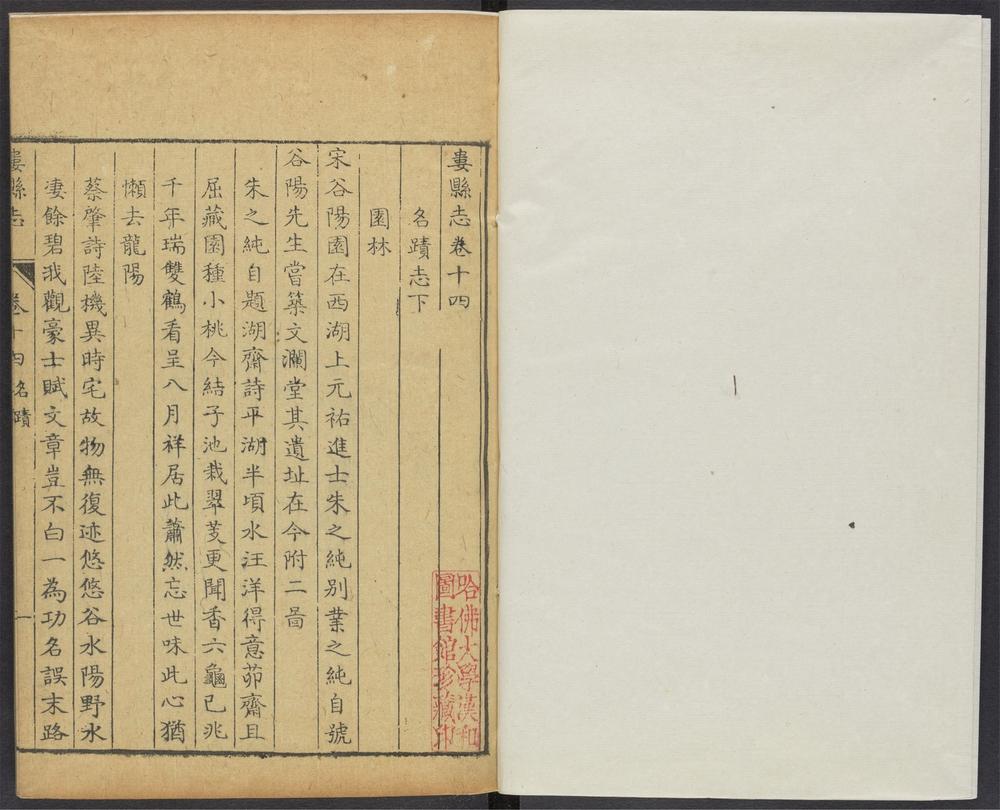 婁縣志卷十四
名蹟志下
園林
宋谷陽園在西湖上元祐進士朱之純别業之純自號
谷陽先生嘗築文瀾堂其遺址在今附二啚
朱之純自題湖齋詩平湖半頃水汪洋得意茆齋且
屈藏園種小桃今結子池栽翠芰更聞香六龜已兆
千年瑞雙鶴看呈八月祥居此蕭然忘世味此心猶
懶去龍陽
蔡肇詩陸機異時宅故物無復迹悠悠谷水陽野水
凄餘碧我觀豪士賦文章豈不白一為功名誤末路
婁縣志 卷十四名蹟 一
哈佛大學漢和
圖書館珍藏印